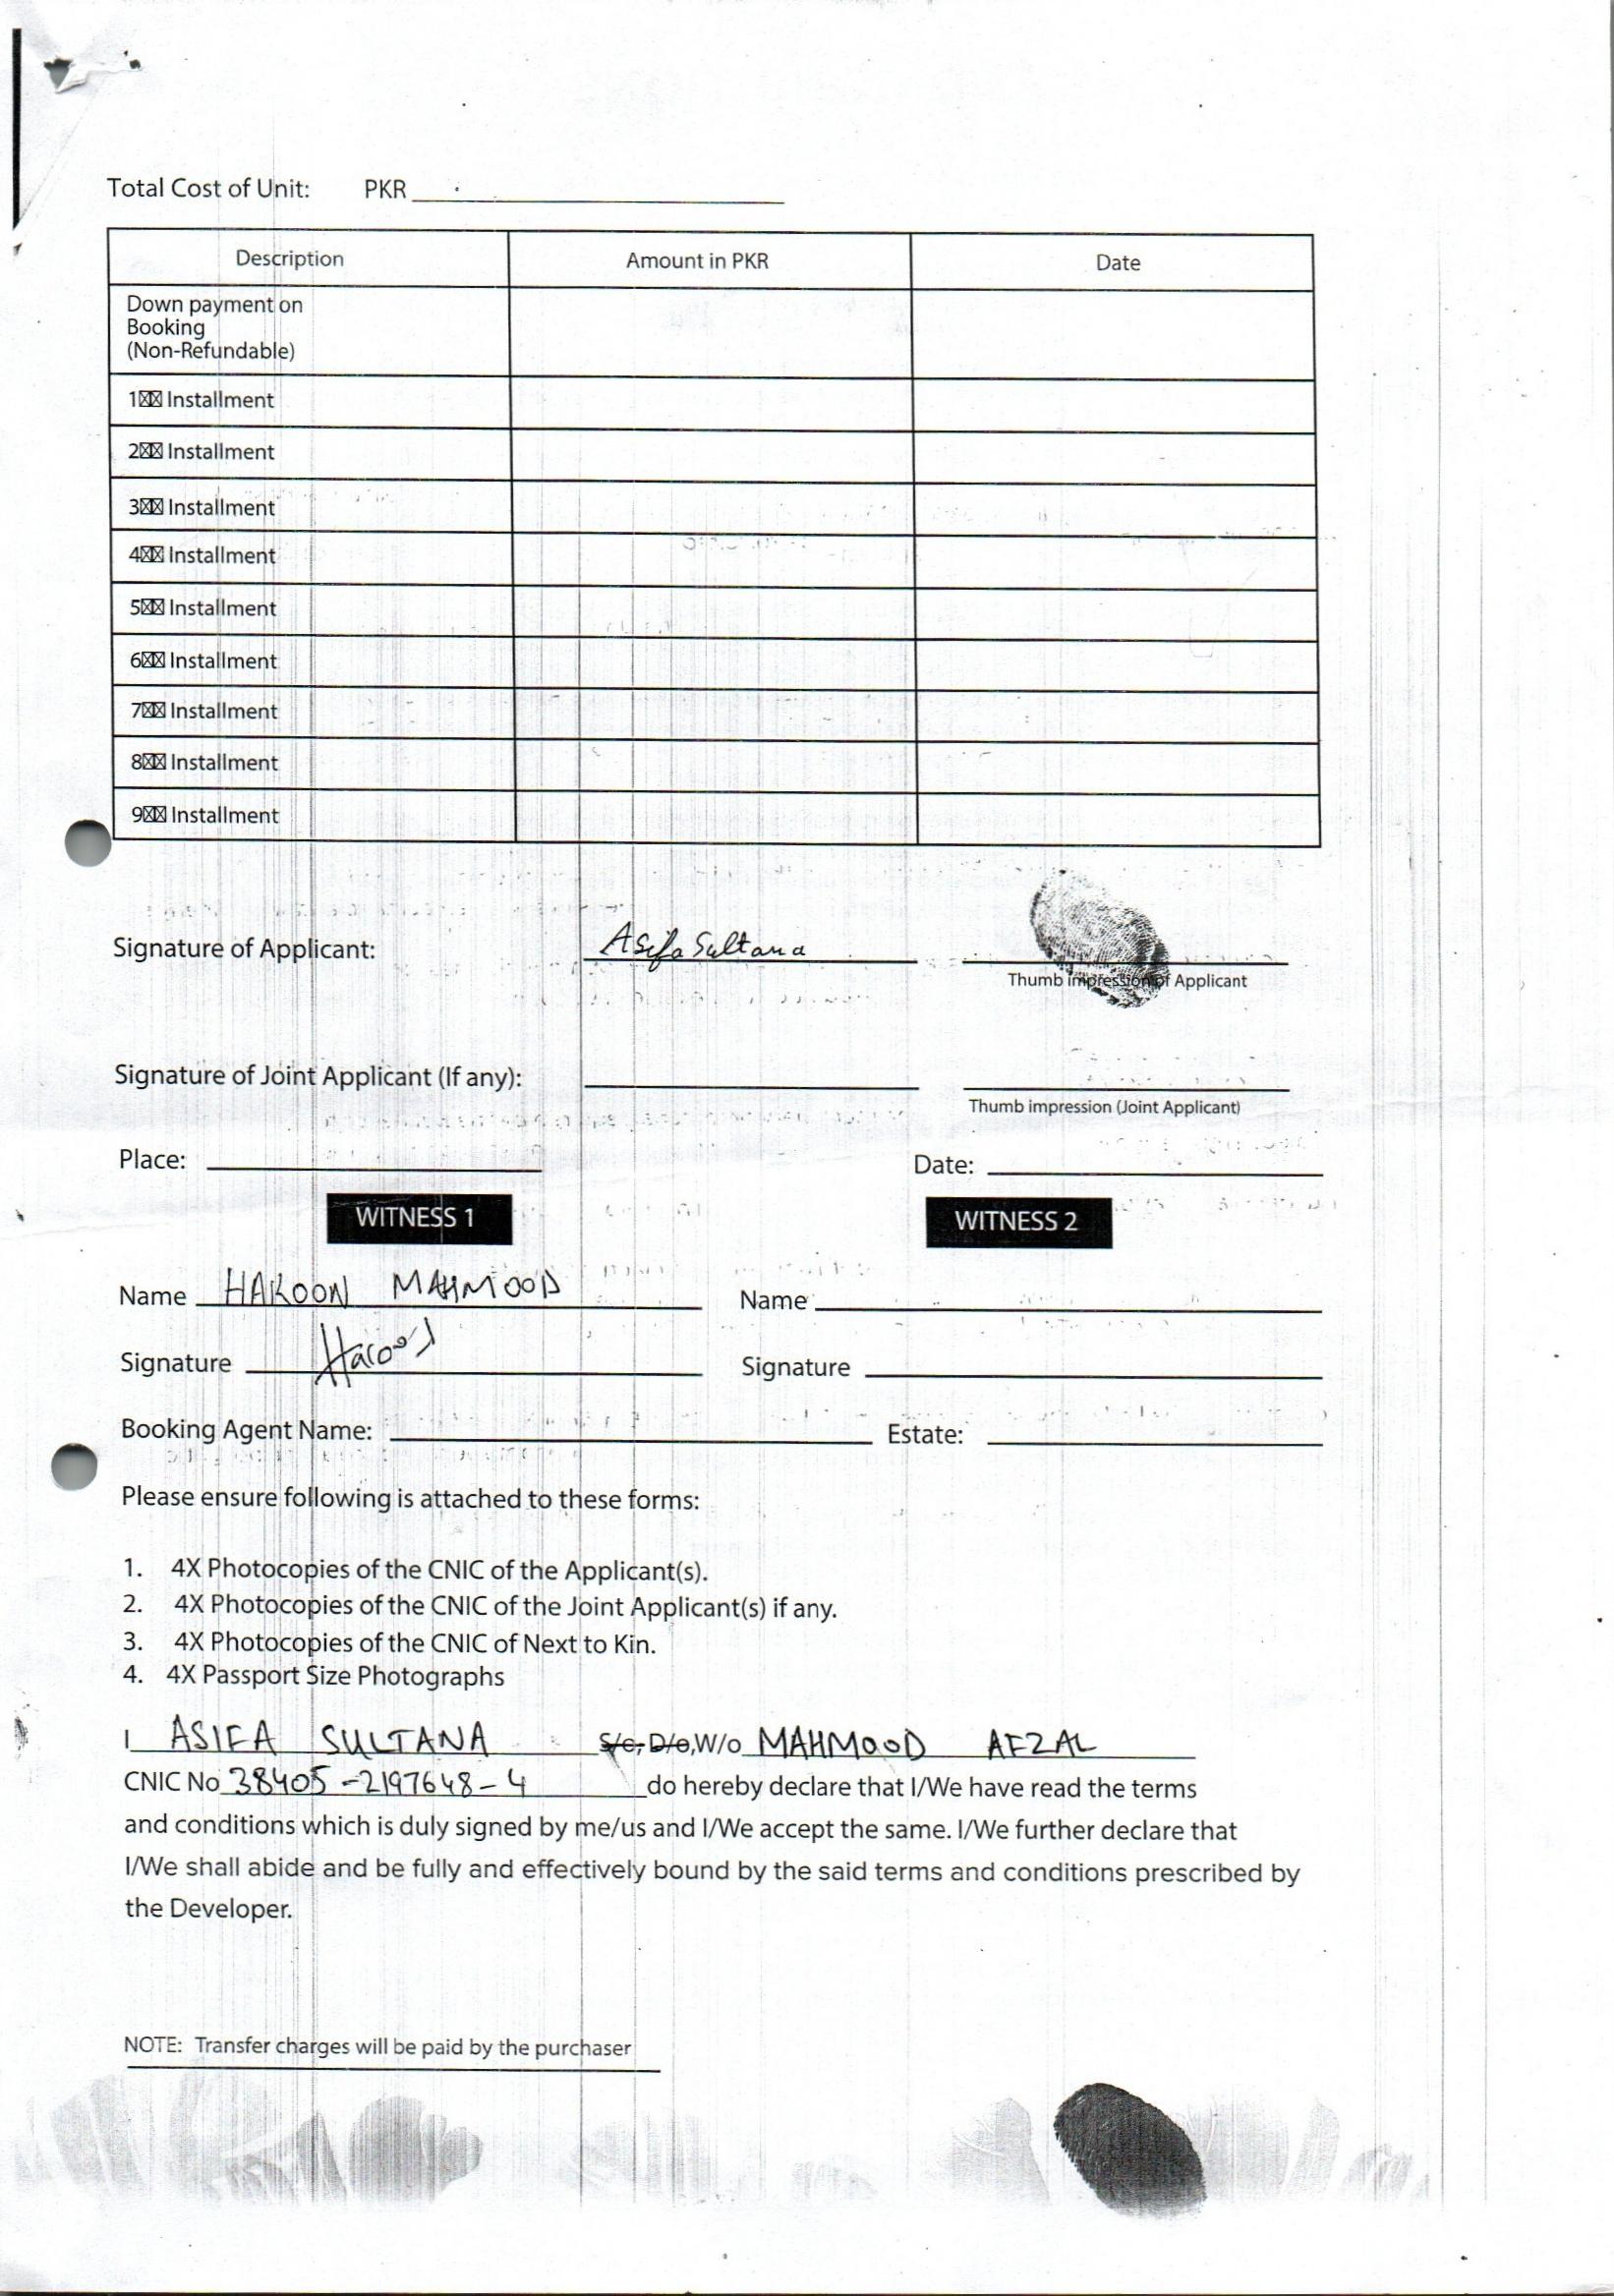 Total Cost of Unit: PKR
Description Amount in PKR Date
Down payment on
Booking
(Non-Refundable)
1 Installment
2 Installment
3 Installment
4 Installment
5 Installment
6 Installment
7 Installment
8 Installment
9 Installment
Signature of Applicant: Asifa Sultana
Thumb impression of Applicant
Signature of Joint Applicant (If any):
Thumb impression (Joint Applicant)
Place: Date:
WITNESS 1 WITNESS 2
Name HAROON MAHMOOD Name
Signature Haroon Signature
Booking Agent Name: Estate:
Please ensure following is attached to these forms:
1. 4X Photocopies of the CNIC of the Applicant(s).
2. 4X Photocopies of the CNIC of the Joint Applicant(s) if any.
3. 4X Photocopies of the CNIC of Next to Kin.
4. 4X Passport Size Photographs
I ASIFA SULTANA S/o, D/o, W/o MAHMOOD AFZAL
CNIC No 38405-2197648-4 do hereby declare that I/We have read the terms
and conditions which is duly signed by me/us and I/We accept the same. I/We further declare that
I/We shall abide and be fully and effectively bound by the said terms and conditions prescribed by
the Developer.
NOTE: Transfer charges will be paid by the purchaser